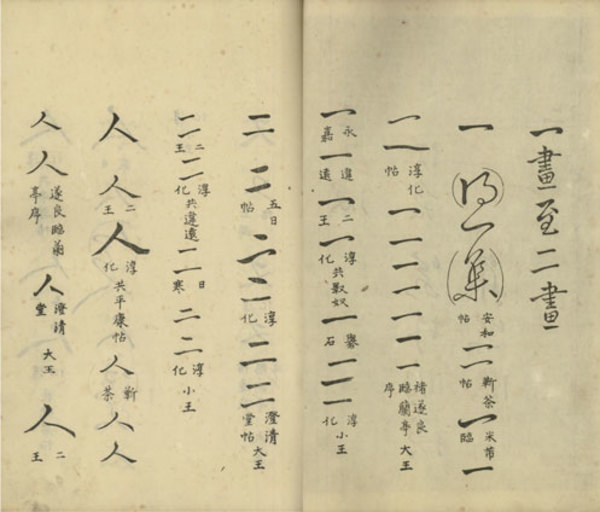 一畫至二畫
一 一集 安和帖 一 一 靳茶帖 一 米芾臨 一
一 一 淳化帖 一 一 一 一 一 一 一 褚遂良臨蘭亭序 大王
一 永嘉 一 違遠 一 二王 一 淳化 共奴 一 石 一 一 一 淳化 小王
二 二 五日帖 二 二 淳化 二 二 澄清堂帖 大王
二 二王 二 淳化 共違遠 二 日寒 二 二 淳化 小王
人 人 二王 人 淳化 共平康帖 人 靳茶 人 人
人 人 遂良臨蘭亭序 人 澄清堂 大王 人 二王